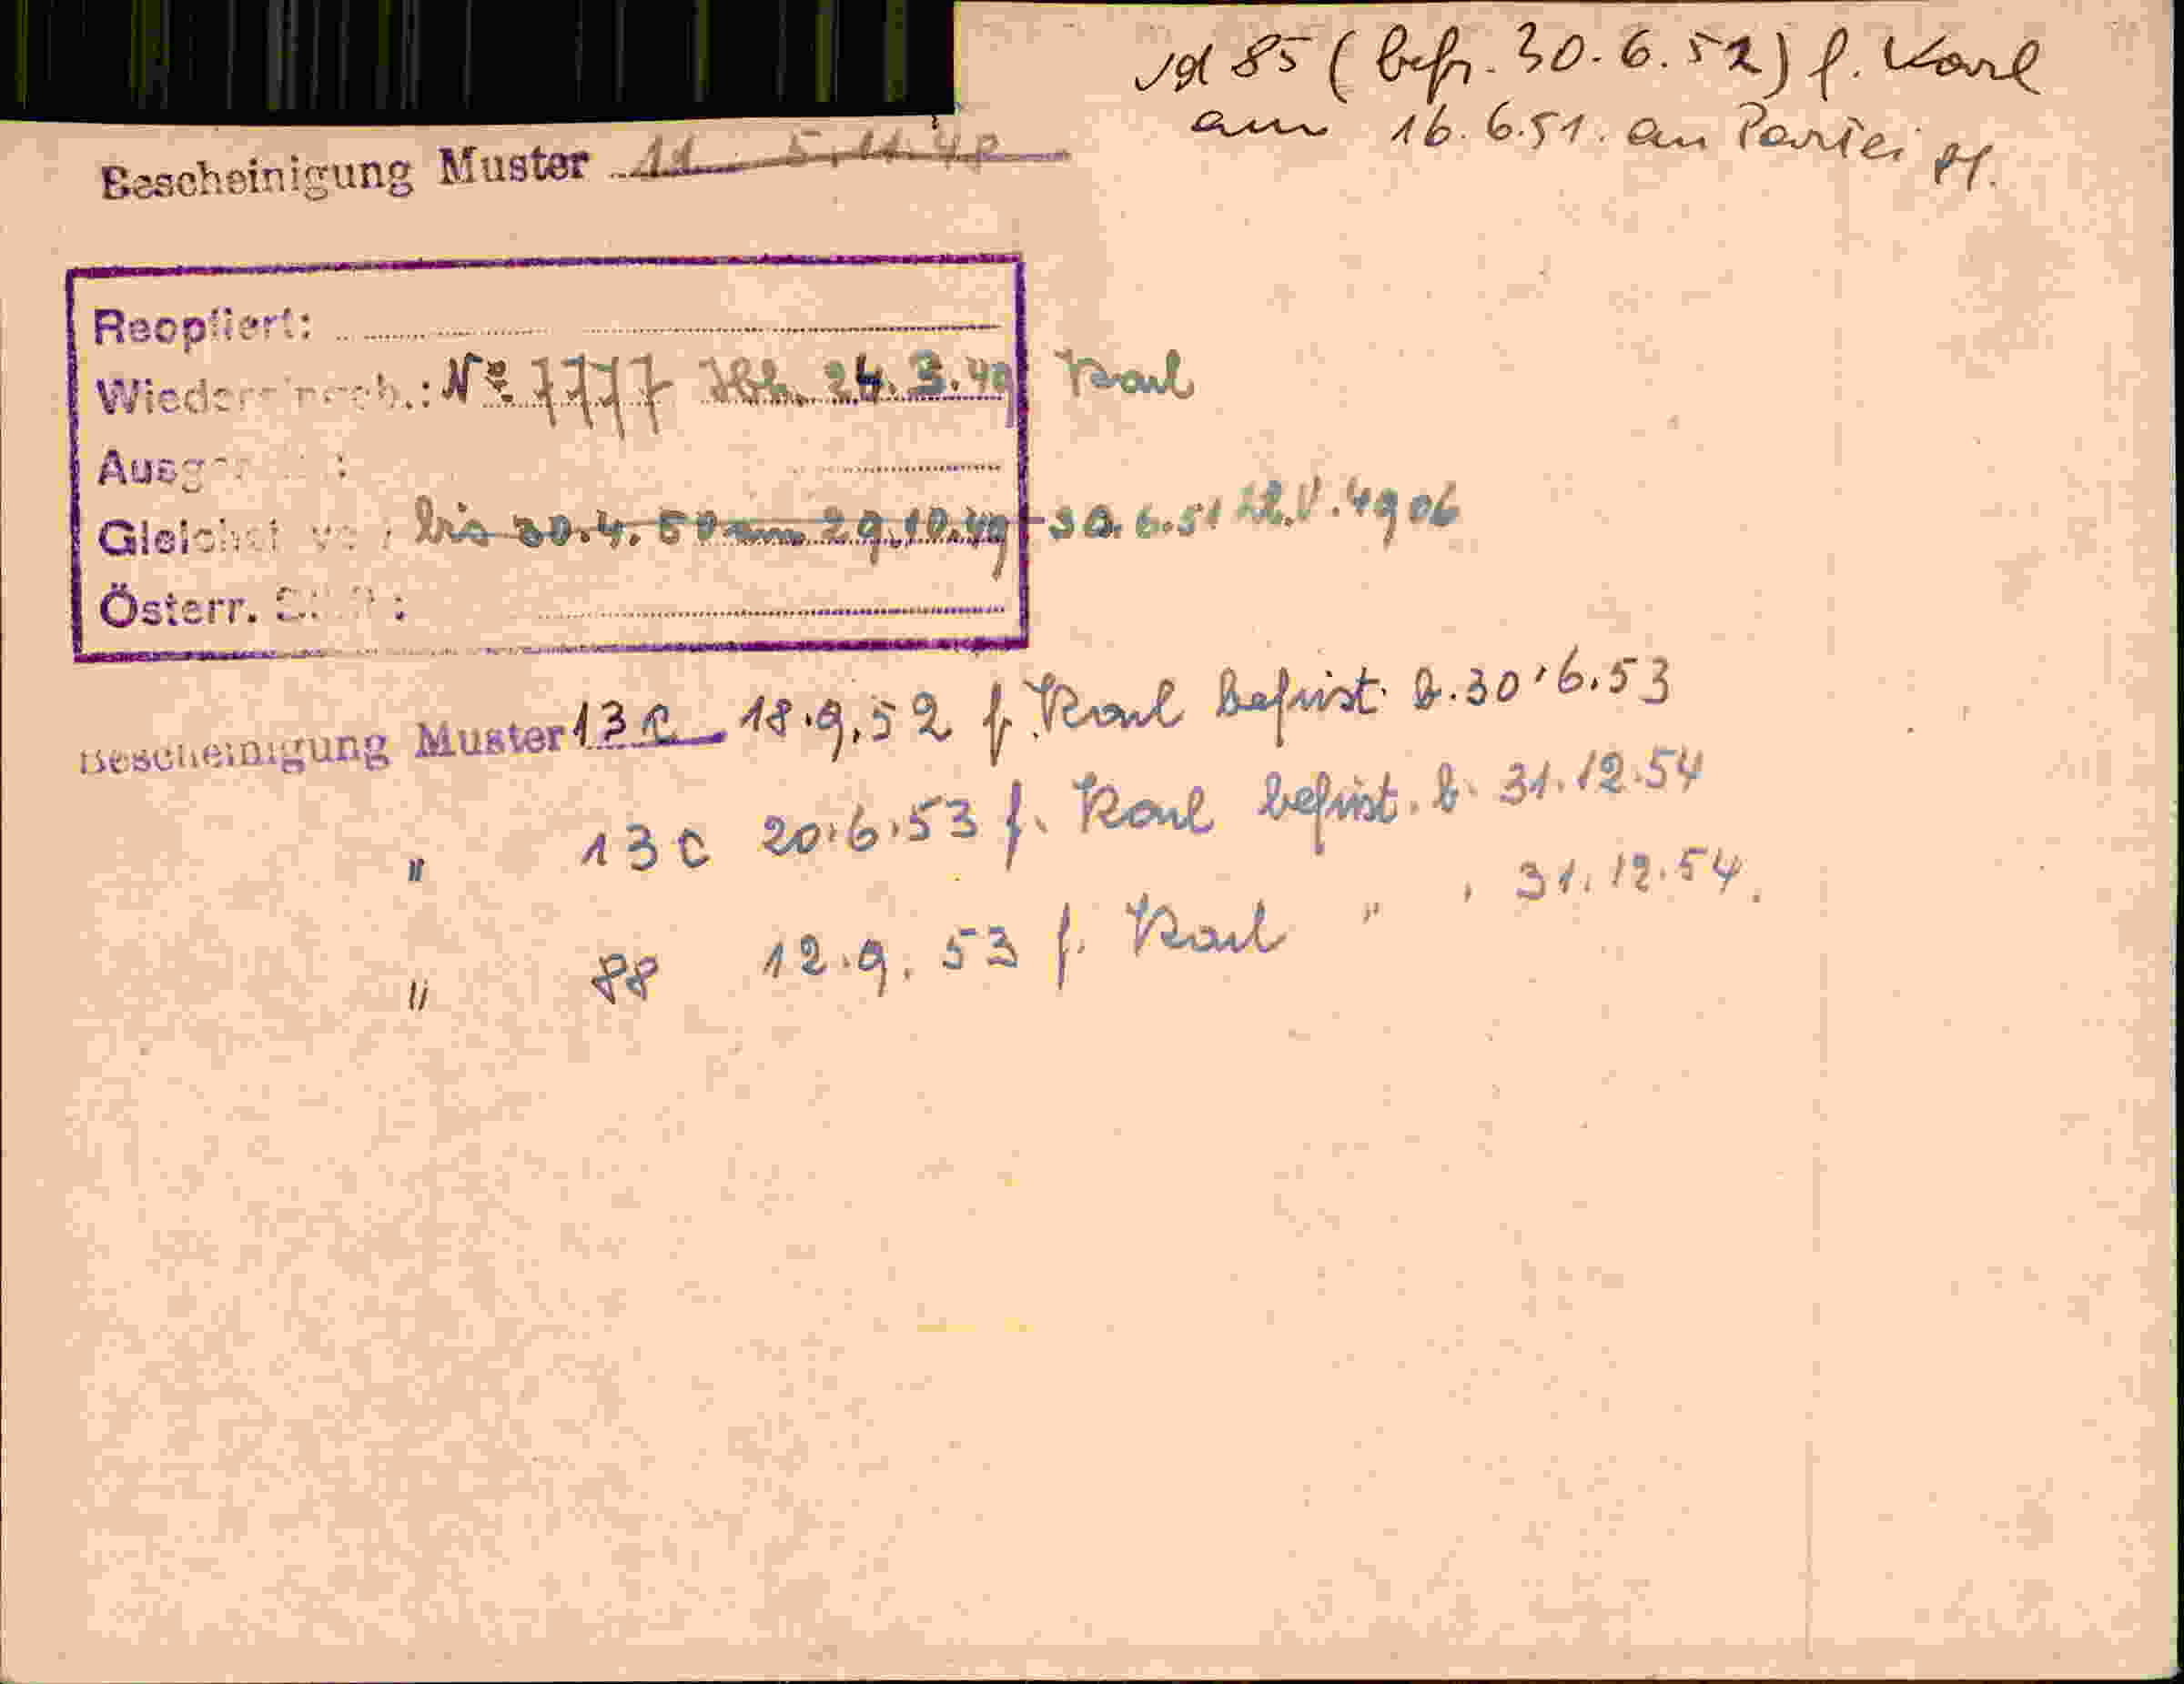 85 (befr. 30.6.52) f. Karl
am 16.6.51. an Partei
Bescheinigung Muster 11 5.11.48
Reoptiert:
Nº 7777 24.3.49 Karl
bis 30.4.50 am 29.10.49 30.6.51
Österr.
Bescheinigung Muster 13c 18.9.52 f. Karl befrist. b. 30.6.53
" 13c 20.6.53 f. Karl befrist. b. 31.12.54
" 88 12.9.53 f. Karl " , 31.12.54.